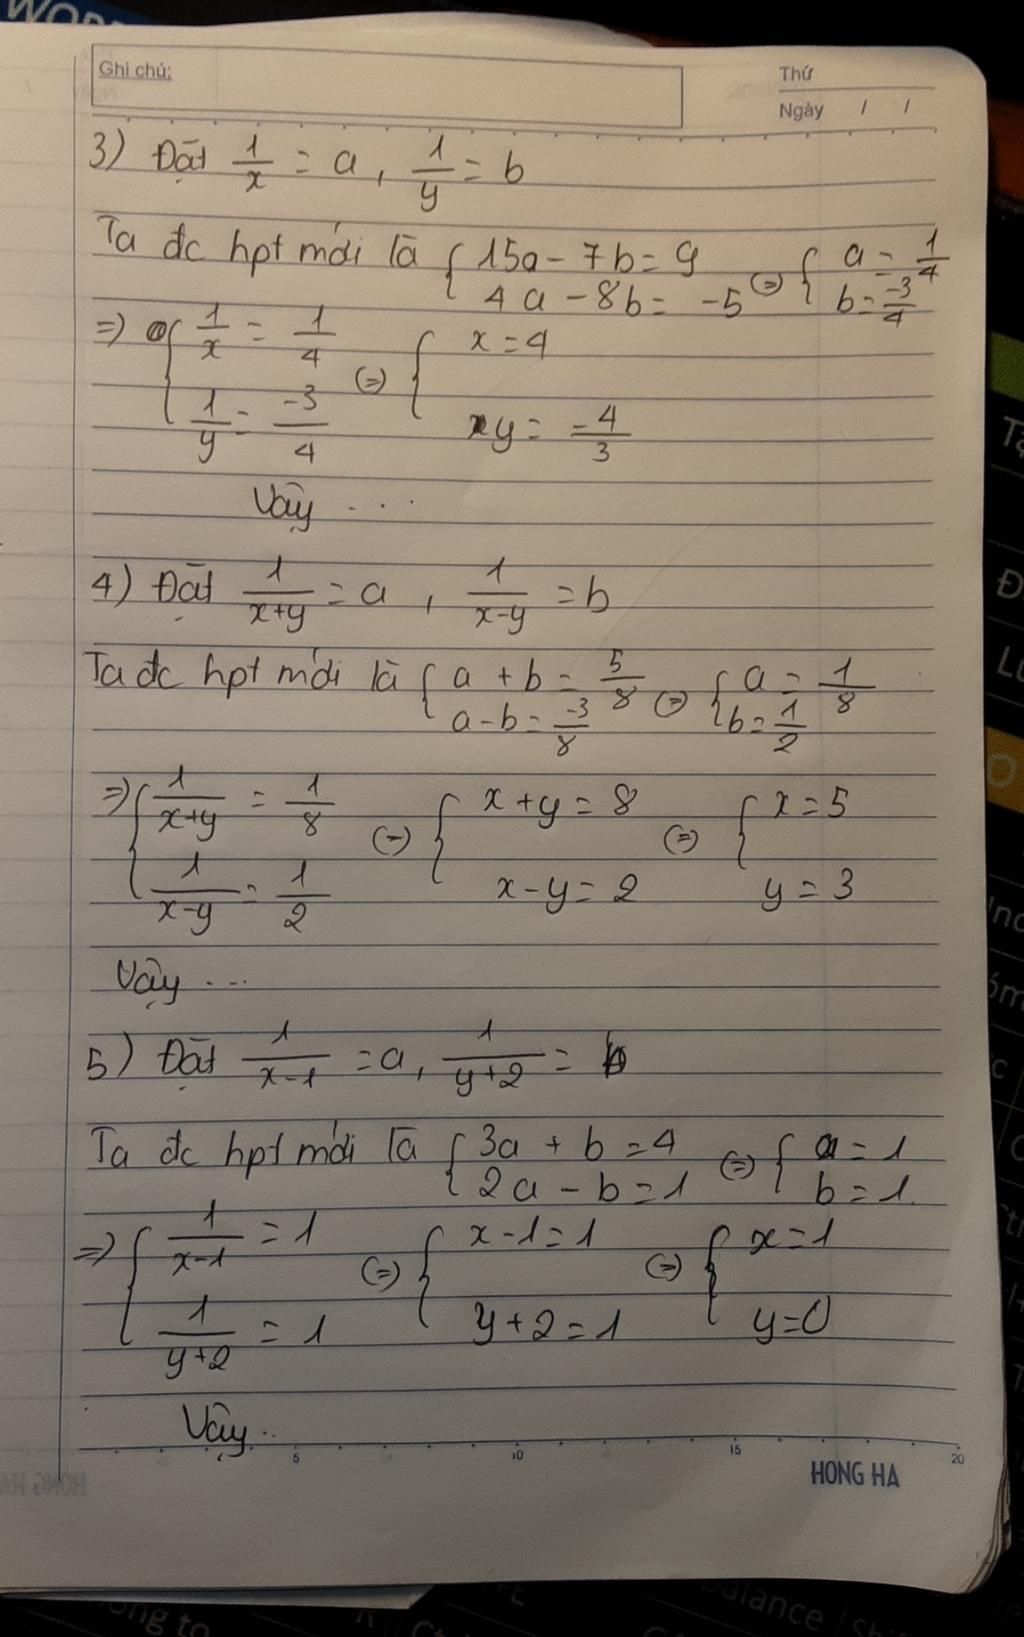 WORD
Ghi chú:
Thứ
Ngày / /
3) Đặt 1/x = a, 1/y = b
Ta đc hpt mới là { 15a - 7b = 9 (=) { a = 1/4
4a - 8b = -5 b = -3/4
=> { 1/x = 1/4 (=) { x = 4
1/y = -3/4 y = -4/3
Vậy ...
4) Đặt 1/(x+y) = a, 1/(x-y) = b
Ta đc hpt mới là { a + b = 5/8 (=) { a = 1/8
a - b = -3/8 b = 1/2
=> { 1/(x+y) = 1/8 (=) { x + y = 8 (=) { x = 5
1/(x-y) = 1/2 x - y = 2 y = 3
Vậy ...
5) Đặt 1/(x-1) = a, 1/(y+2) = b
Ta đc hpt mới là { 3a + b = 4 (=) { a = 1
2a - b = 1 b = 1.
=> { 1/(x-1) = 1 (=) { x - 1 = 1 (=) { x = 1
1/(y+2) = 1 y + 2 = 1 y = 0
Vậy..
5 10 15 20
HONG HA